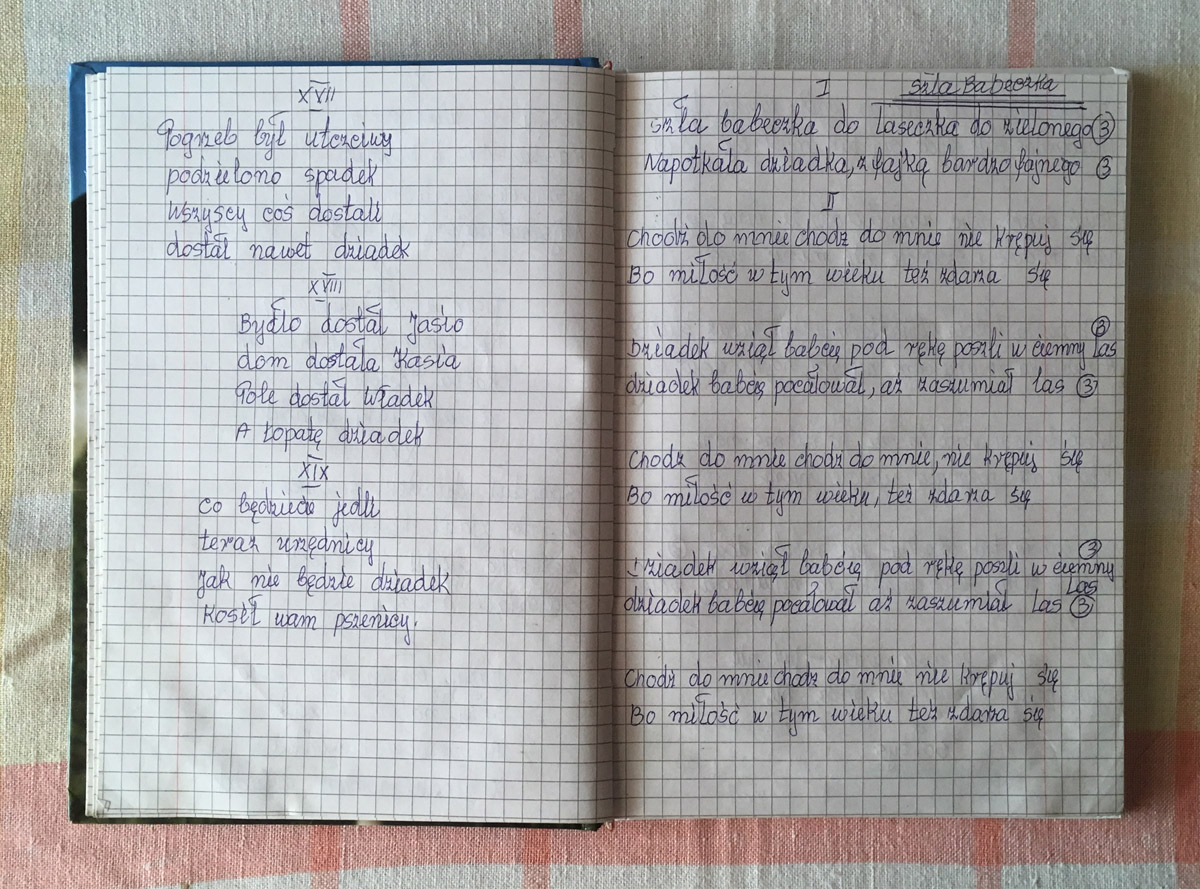 XVII
Pogrzeb był utczciwy
podzielono spadek
Wszyscy coś dostali
dostał nawet dziadek
XVIII
Bydło dostał Jasio
dom dostała Kasia
Pole dostał Władek
A łopatę dziadek
XIX
Co będziecie jedli
teraz urzędnicy
Jak nie będzie dziadek
Kosił wam pszenicy.
I Szła Babeczka
Szła babeczka do laseczka do zielonego 3
Napotkała dziadka, z fajką bardzo fajnego 3
II
Chodź do mnie chodź do mnie nie krępuj się
Bo miłość w tym wieku też zdarza się
3
Dziadek wziął babcię pod rękę poszli w ciemny las
dziadek babcię pocałował, aż zaszumiał las 3
Chodz do mnie chodz do mnie, nie krępuj się
Bo miłość w tym wieku, też zdarza się
3
Dziadek wziął babcię pod rękę poszli w ciemny
las
dziadek babcię pocałował aż zaszumiał las 3
Chodz do mnie chodz do mnie nie krępuj się
Bo miłość w tym wieku też zdarza się